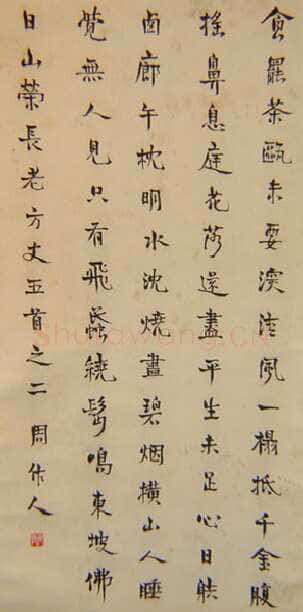 食罷茶甌未要深清風一榻抵千金腹
搖鼻息庭花落還盡平生未足心日射
廊午枕明水沈燒盡碧烟橫山人睡
覺無人見只有飛繞髩鳴東坡佛
日山榮長老方丈五首之二 周作人